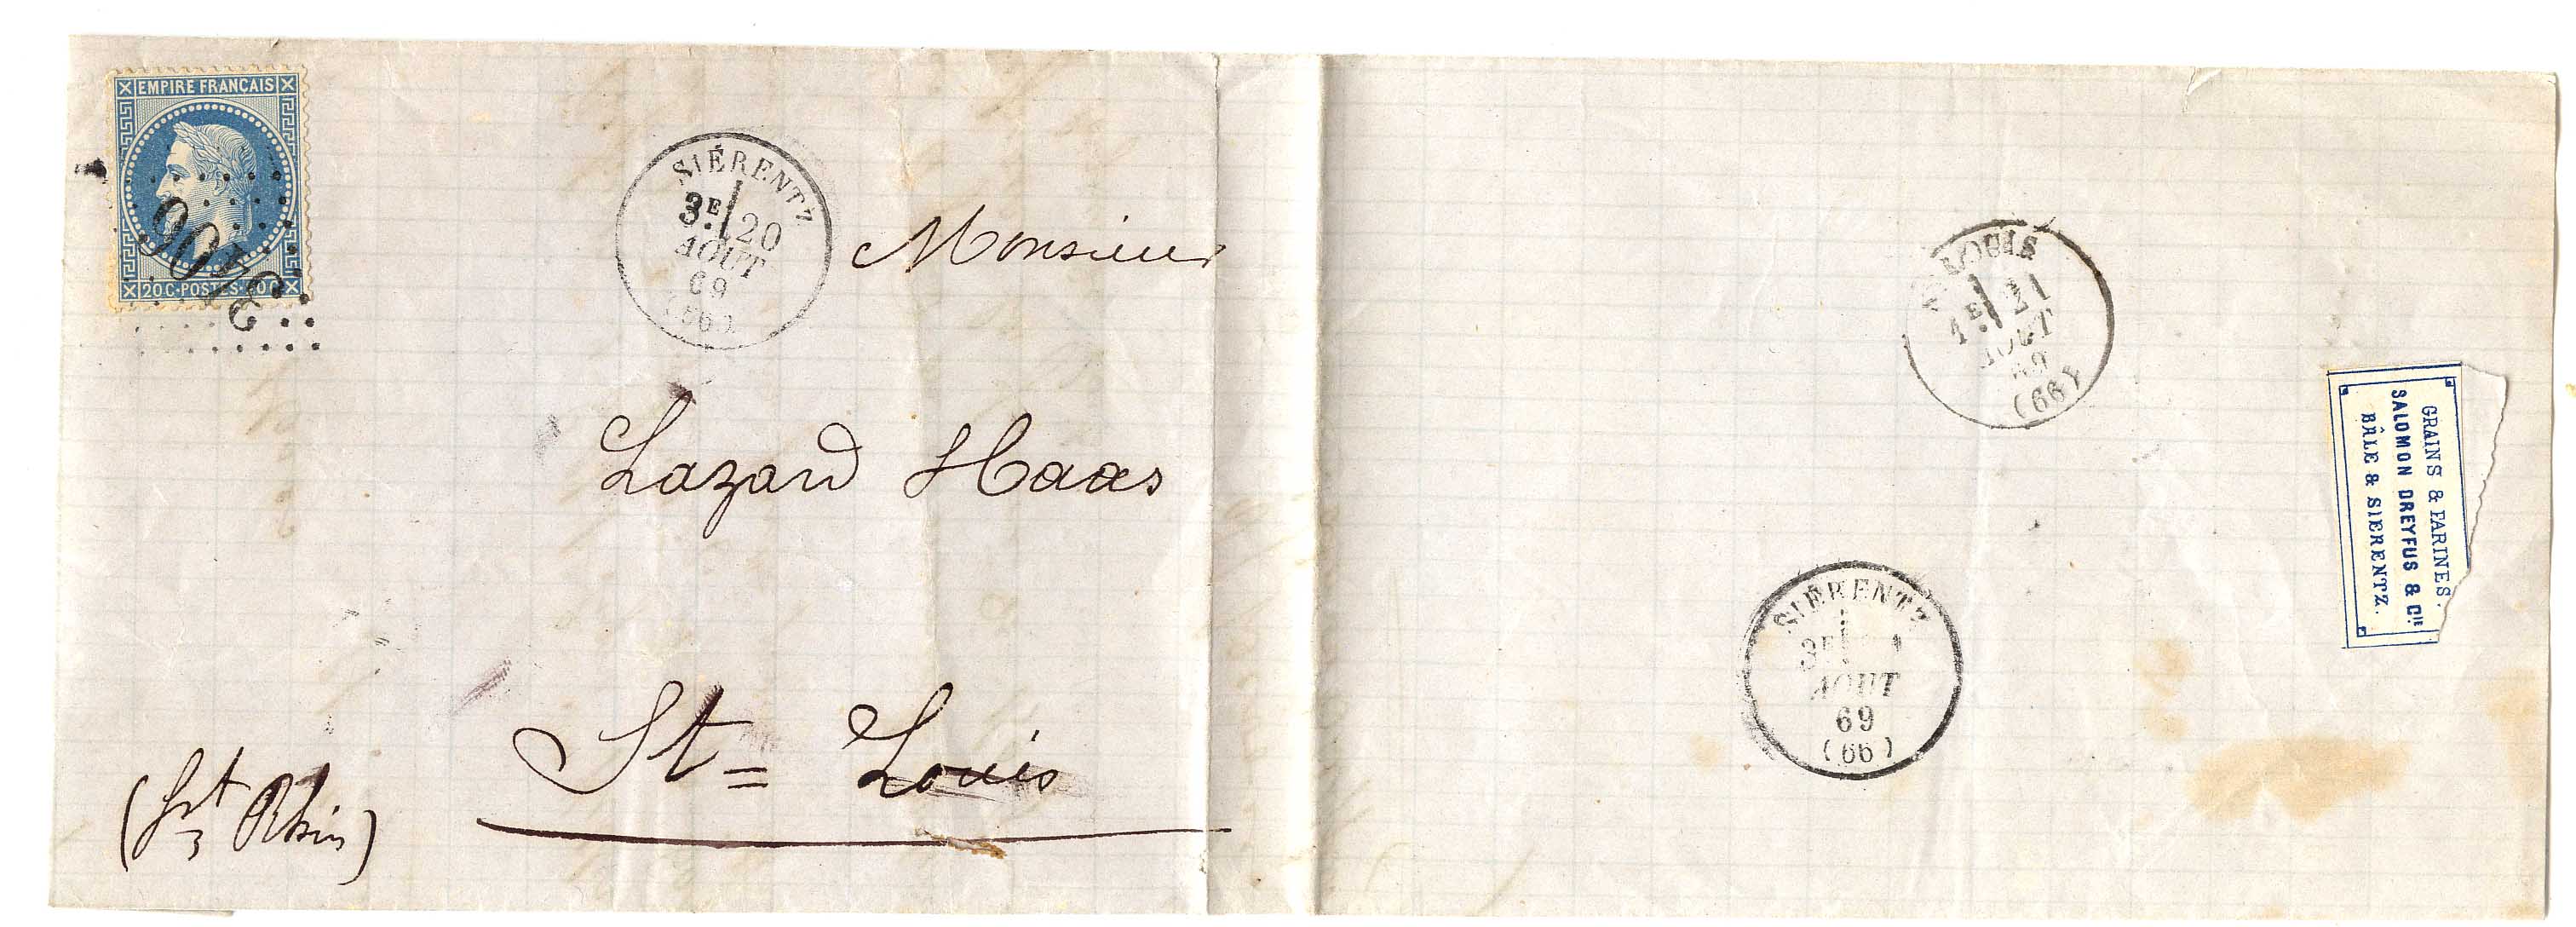 EMPIRE FRANÇAIS
20 C·POSTES·20 C
3406
SIÉRENTZ
3E 20
AOUT
69
(66)
Monsieur
Lazard Haas
St= Louis
(Ht Rhin)
ST LOUIS
1E 21
AOUT
69
(66)
SIÉRENTZ
3E
AOUT
69
(66)
GRAINS & FARINES.
SALOMON DREYFUS & CIE
BÂLE & SIERENTZ.